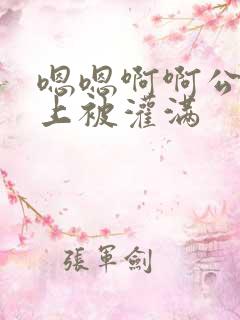 嗯嗯啊啊公
上被灌满
張軍劍